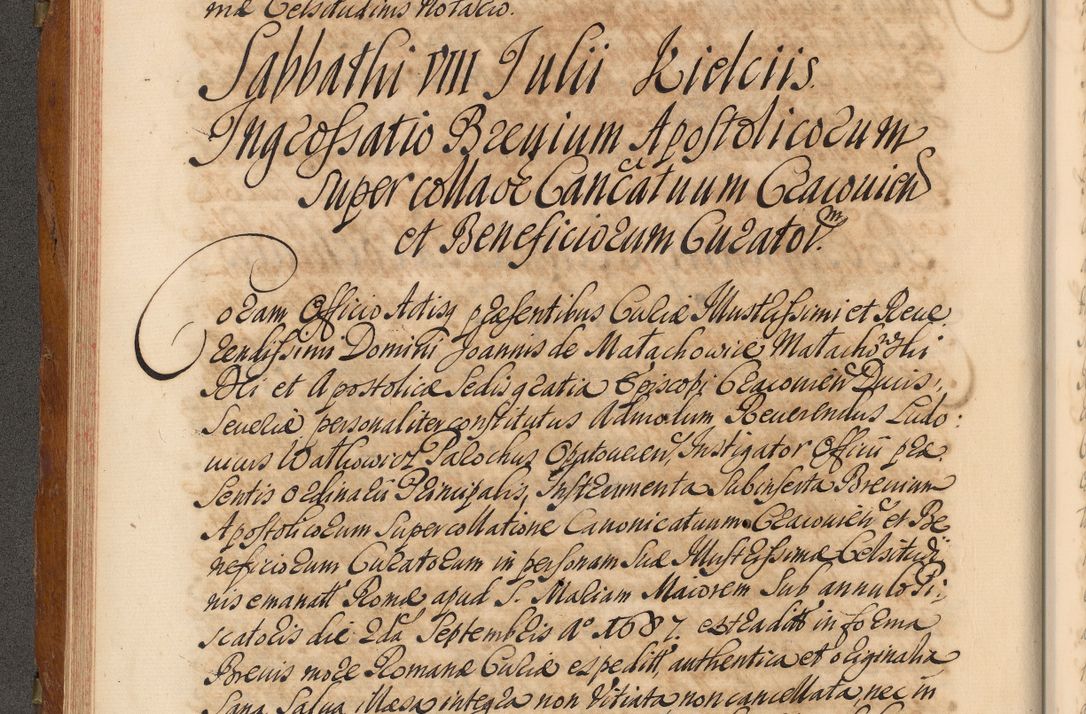 mæ Celsitudinis Notario.
Sabbathi VIII Julii Kielciis.
Ingrossatio Brevium Apostolicorum
super collaõe Canc̃atuum Cracouien̄
et Beneficiorum Curator.m
Coram Officio Actisq præsentibus Curiæ Illustrissimi et Reue
rendissimi Domini Joannis de Małachowice Małachowski
Dei et Apostolicæ Sedis gratia Episcopi Cracouien̄ Ducis
Seueriæ personaliter constitutus Admodum Reuerendus Ludo:
uicus Parochus Opatouecien̄, Instigator Officii præ
sentis ordinarii Principalis, Instrumenta Subinserta Breuium
Apostolicorum Super collatione Canonicatuum Cracouien̄ et Be
neficiorum Curatorum in personam Suæ Illustrissimæ Celsitudi
nis emanatt Romæ apud S. Mariam Maiorem Sub annulo Pi,
scatoris die 2da Septembris Aº 1687. extraditt in forma
Breuis more Romanæ Curiæ expeditt, authentica et originalia
Sana Salua illæsa integra non vitiata non cancellata, nec in